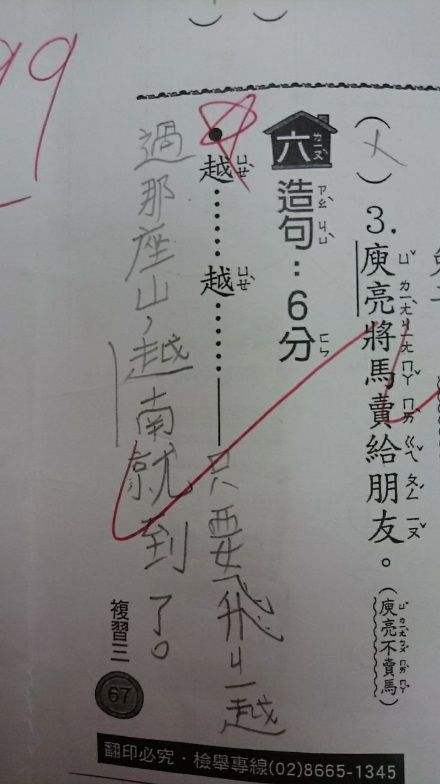 (ㄨ)3.庾亮將馬賣給朋友。(庾亮不賣馬)
六 造句:6分
越……越……——只要飛ㄐ一越
過那座山,越南就到了。
99
複習三 67
翻印必究・檢舉專線(02)8665-1345